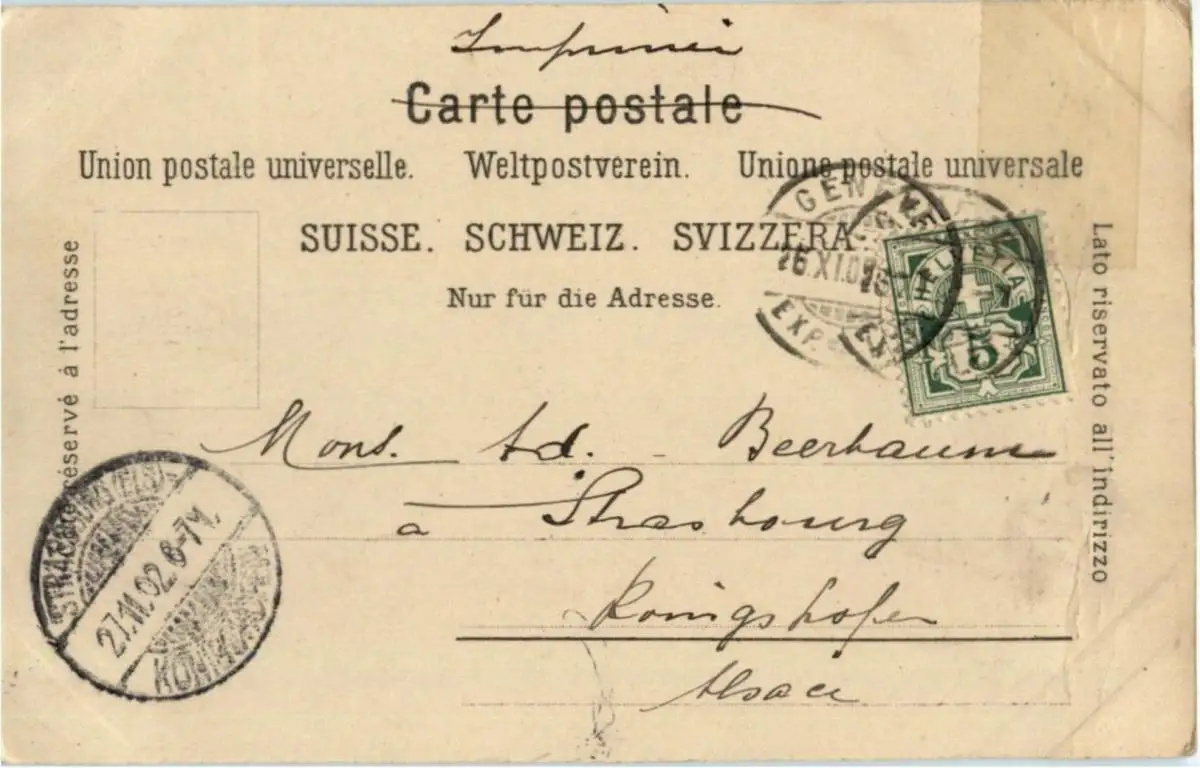 Imprimé
Carte postale
Union postale universelle. Weltpostverein. Unione postale universale
SUISSE. SCHWEIZ. SVIZZERA.
Nur für die Adresse.
réservé à l'adresse
Lato riservato all'indirizzo
GENÈVE
26.XI.02
EXP.
HELVETIA
5
Mons. Ad. Beerbaum
à Strasbourg
Königshofen
Alsace
STRASSBURG (ELS)
27.11.02.6-7N.
KÖNIGSHOFEN